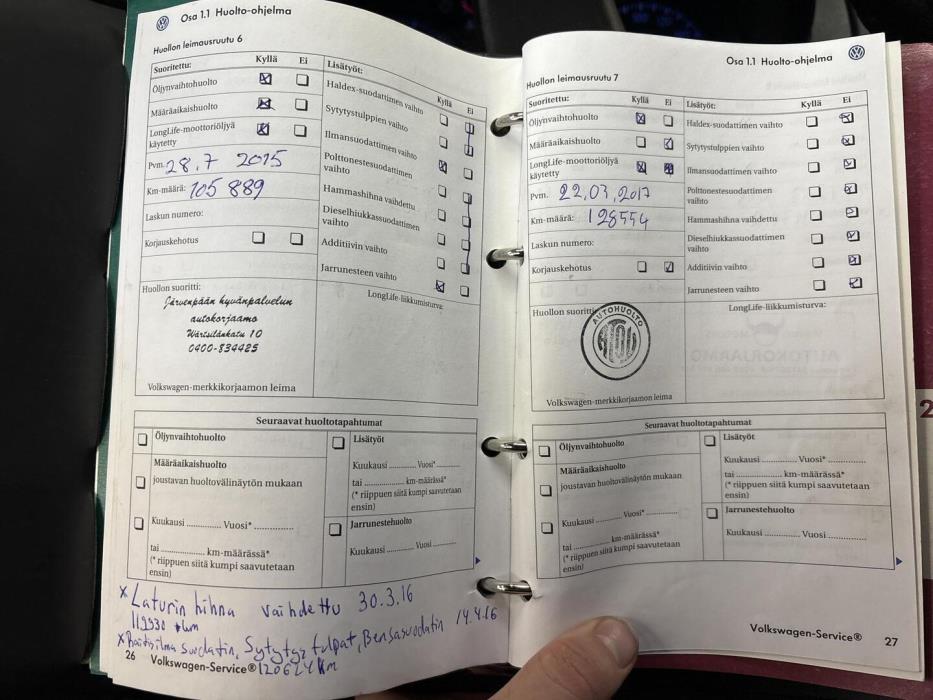 Osa 1.1 Huolto-ohjelma
Huollon leimausruutu 6
Suoritettu: Kyllä Ei
Öljynvaihtohuolto
Määräaikaishuolto
LongLife-moottoriöljyä
käytetty
Pvm. 28.7 2015
Km-määrä: 105 889
Laskun numero:
Korjauskehotus
Huollon suoritti:
Järvenpään hyvänpalvelun
autokorjaamo
Wärtsilänkatu 10
0400-834425
Volkswagen-merkkikorjaamon leima
Lisätyöt: Kyllä Ei
Haldex-suodattimen vaihto
Sytytystulppien vaihto
Ilmansuodattimen vaihto
Polttonestesuodattimen
vaihto
Hammashihna vaihdettu
Dieselhiukkassuodattimen
vaihto
Additiivin vaihto
Jarrunesteen vaihto
LongLife-liikkumisturva:
Seuraavat huoltotapahtumat
Öljynvaihtohuolto
Määräaikaishuolto
joustavan huoltovälinäytön mukaan
Kuukausi ............. Vuosi* ..............
tai ................. km-määrässä*
(* riippuen siitä kumpi saavutetaan
ensin)
Lisätyöt
Kuukausi .......... Vuosi* ..........
tai .......... km-määrässä*
(* riippuen siitä kumpi saavutetaan
ensin)
Jarrunestehuolto
Kuukausi .......... Vuosi ..........
x Laturin hihna vaihdettu 30.3.16
119930 km
x Raitisilma suodatin, Sytytys tulpat, Bensasuodatin 14.4.16
120624 km
26 Volkswagen-Service®
Osa 1.1 Huolto-ohjelma
Huollon leimausruutu 7
Suoritettu: Kyllä Ei
Öljynvaihtohuolto
Määräaikaishuolto
LongLife-moottoriöljyä
käytetty
Pvm. 22.03.2017
Km-määrä: 128554
Laskun numero:
Korjauskehotus
Huollon suoritti:
AUTOHUOLTO
Volkswagen-merkkikorjaamon leima
Lisätyöt: Kyllä Ei
Haldex-suodattimen vaihto
Sytytystulppien vaihto
Ilmansuodattimen vaihto
Polttonestesuodattimen
vaihto
Hammashihna vaihdettu
Dieselhiukkassuodattimen
vaihto
Additiivin vaihto
Jarrunesteen vaihto
LongLife-liikkumisturva:
Seuraavat huoltotapahtumat
Öljynvaihtohuolto
Määräaikaishuolto
joustavan huoltovälinäytön mukaan
Kuukausi .......... Vuosi* ..........
tai .............. km-määrässä*
(* riippuen siitä kumpi saavutetaan
ensin)
Lisätyöt
Kuukausi .......... Vuosi* ..........
tai .......... km-määrässä*
(* riippuen siitä kumpi saavutetaan
ensin)
Jarrunestehuolto
Kuukausi .......... Vuosi ..........
Volkswagen-Service® 27
2